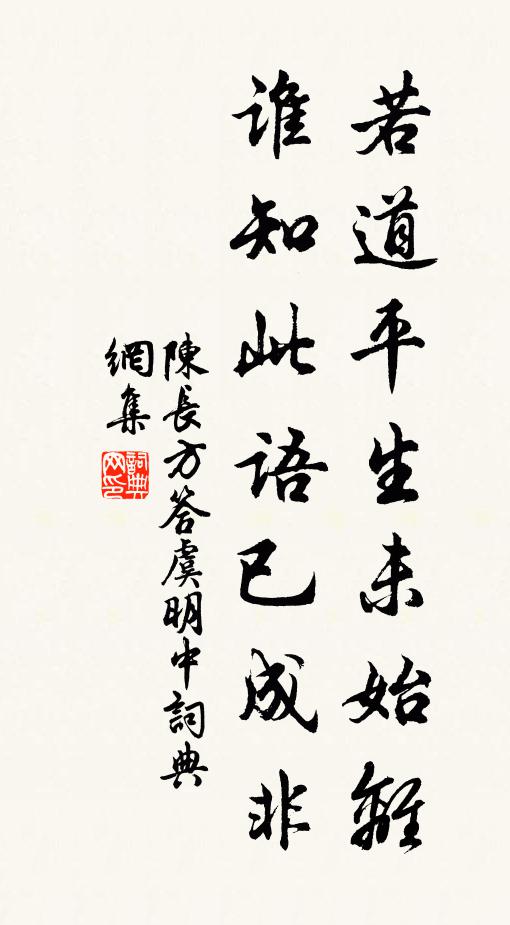 若道平生未始離
誰知此語已成非
陳長方答虞明中詞典
網集
詞典网印